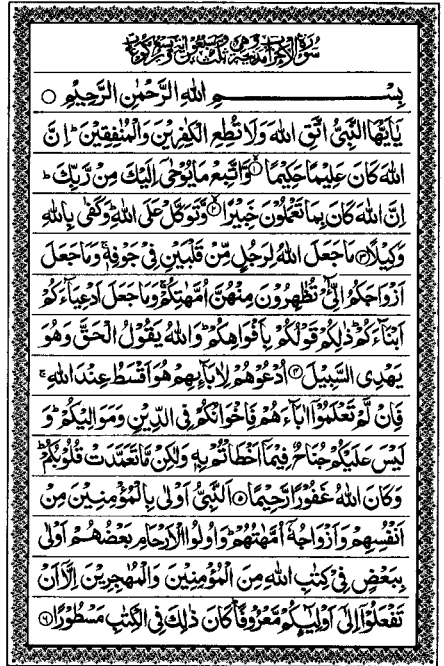 سُوْرَةُ الْاَحْزَابِ مَدَنِيَّةٌ
بِسْمِ اللهِ الرَّحْمٰنِ الرَّحِيْمِ ○
يٰۤاَيُّهَا النَّبِيُّ اتَّقِ اللهَ وَلَا تُطِعِ الْكٰفِرِيْنَ وَالْمُنٰفِقِيْنَ ؕ اِنَّ
اللهَ كَانَ عَلِيْمًا حَكِيْمًا ۙ﴿۱﴾ وَّاتَّبِعْ مَا يُوْحٰۤى اِلَيْكَ مِنْ رَّبِّكَ ؕ
اِنَّ اللهَ كَانَ بِمَا تَعْمَلُوْنَ خَبِيْرًا ۙ﴿۲﴾ وَّتَوَكَّلْ عَلَى اللهِ ؕ وَكَفٰى بِاللهِ
وَكِيْلًا ﴿۳﴾ مَا جَعَلَ اللهُ لِرَجُلٍ مِّنْ قَلْبَيْنِ فِيْ جَوْفِهٖ ۚ وَمَا جَعَلَ
اَزْوَاجَكُمُ الّٰٓـِٔيْ تُظٰهِرُوْنَ مِنْهُنَّ اُمَّهٰتِكُمْ ۚ وَمَا جَعَلَ اَدْعِيَآءَكُمْ
اَبْنَآءَكُمْ ؕ ذٰلِكُمْ قَوْلُكُمْ بِاَفْوَاهِكُمْ ؕ وَاللهُ يَقُوْلُ الْحَقَّ وَهُوَ
يَهْدِي السَّبِيْلَ ﴿۴﴾ اُدْعُوْهُمْ لِاٰبَآئِهِمْ هُوَ اَقْسَطُ عِنْدَ اللهِ ۚ
فَاِنْ لَّمْ تَعْلَمُوْۤا اٰبَآءَهُمْ فَاِخْوَانُكُمْ فِي الدِّيْنِ وَمَوَالِيْكُمْ ؕ وَ
لَيْسَ عَلَيْكُمْ جُنَاحٌ فِيْمَاۤ اَخْطَاْتُمْ بِهٖ وَلٰكِنْ مَّا تَعَمَّدَتْ قُلُوْبُكُمْ ؕ
وَكَانَ اللهُ غَفُوْرًا رَّحِيْمًا ﴿۵﴾ اَلنَّبِيُّ اَوْلٰى بِالْمُؤْمِنِيْنَ مِنْ
اَنْفُسِهِمْ وَاَزْوَاجُهٗۤ اُمَّهٰتُهُمْ ؕ وَاُولُوا الْاَرْحَامِ بَعْضُهُمْ اَوْلٰى
بِبَعْضٍ فِيْ كِتٰبِ اللهِ مِنَ الْمُؤْمِنِيْنَ وَالْمُهٰجِرِيْنَ اِلَّاۤ اَنْ
تَفْعَلُوْۤا اِلٰۤى اَوْلِيٰٓئِكُمْ مَّعْرُوْفًا ؕ كَانَ ذٰلِكَ فِي الْكِتٰبِ مَسْطُوْرًا ﴿۶﴾